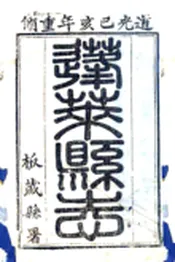 道光己亥年重脩
蓬萊縣志
板藏縣署